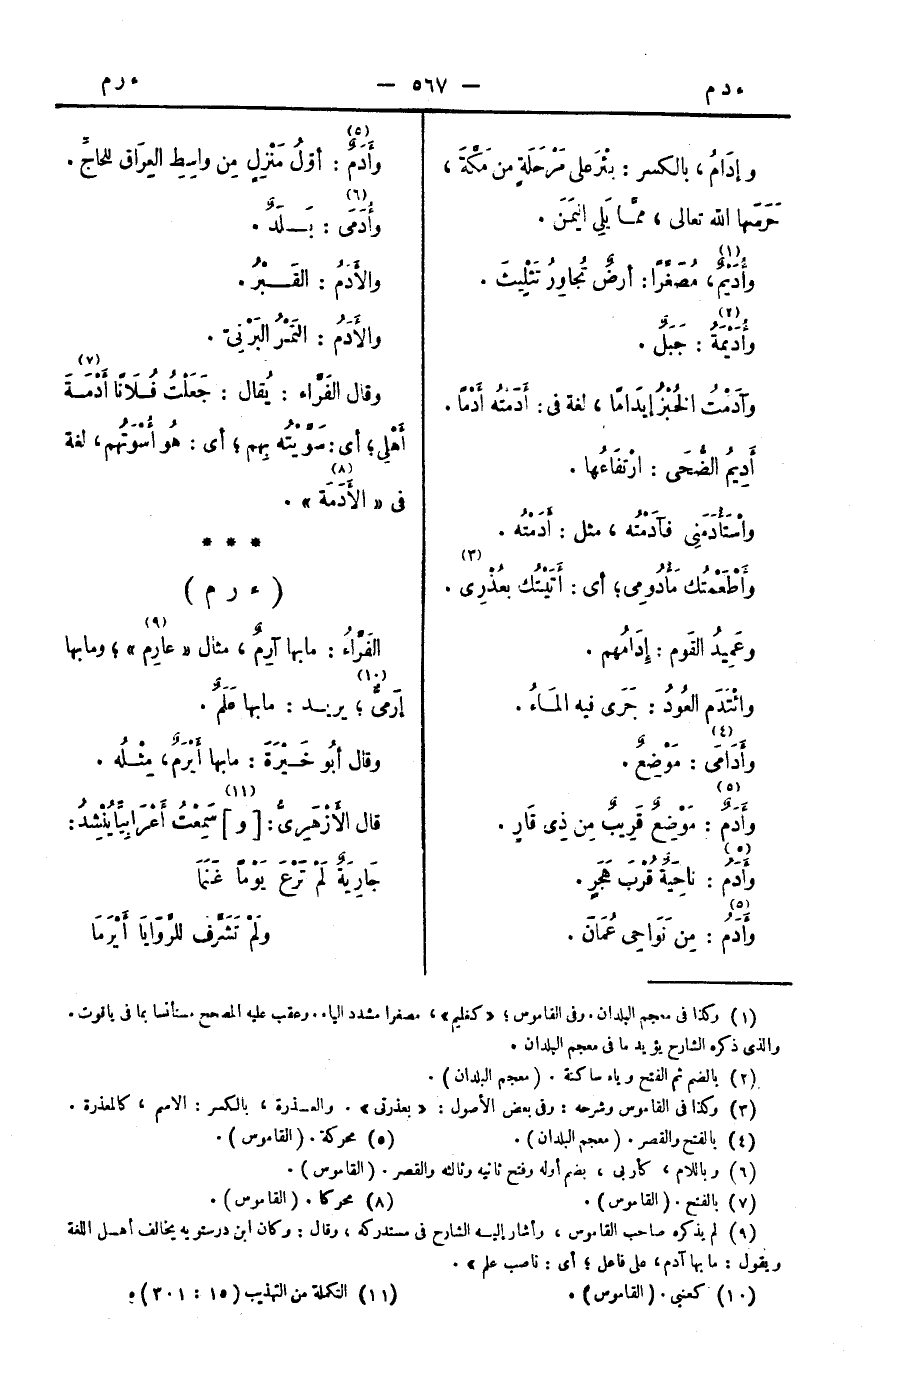 ءدم — ٥٦٧ — ءرم
وإدَامُ ، بالكسر : بئْرٌ على مَرْحَلَةٍ من مَكَّةَ ،
حَرَسَها الله تعالى ، ممَّا يَلِي اليَمَنَ .
وأُدَيْمٌ(١) ، مُصَغَّرًا : أرضٌ تُجاوِرُ تَثْلِيثَ .
وأُدَيْمَةُ(٢) : جَبَلٌ .
وآدَمْتُ الخُبْزَ إيدَامًا ، لغة فى : أَدَمْتُه أَدْمًا .
أَدِيمُ الضُّحَى : ارْتِفَاعُها .
واسْتَأْدَمَنِى فآدَمْتُه ، مثل : أَدَمْتُه .
وأَطْعَمْتُك مَأْدُومِى ؛ أى : أَتَيْتُك بعُذْرِى(٣) .
وعَمِيدُ القَومِ : إدَامُهم .
وائْتَدَم العُودُ : جَرَى فيه المَـاءُ .
وأَدَامَى(٤) : مَوْضِعٌ .
وأَدَمٌ(٥) : مَوْضِعٌ قَرِيبٌ مِن ذِى قَارٍ .
وأَدَمُ(٥) : ناحِيَةٌ قُرْبَ هَجَرٍ .
وأَدَمُ(٥) : مِن نَوَاحِى عُمَانَ .
وأَدَمٌ(٥) : أوّلُ مَنْزِلٍ مِن واسِطِ العِرَاق للحَاجِّ .
وأُدَمَى(٦) : بَـلَدٌ .
والأَدَمُ : القَـبْرُ .
والأَدَمُ : التَّمْرُ البَرْنِىّ .
وقال الفَرَّاء : يُقال : جَعَلْتُ فُـلَانًا أَدْمَةَ(٧)
أَهْلِى ؛ أى : سَوَّيْتُه بِهم ؛ أى : هُو أُسْوَتُهم ، لغة
فى « الأَدَمَة(٨) » .
* * *
( ء ر م )
الفَرَّاءُ : مابها آرِمٌ ، مثال « عارِم(٩) » ؛ ومابها
إرَمِىٌّ(١٠) ؛ يريـد : مابها عَلَمٌ .
وقال أبُو خَـيْرَةَ : مابها أَيْرَمٌ ، مِثْـلُه .
قال الأَزْهَرِىُّ : [ و ](١١) سَمِعْتُ أَعْرَابِيًّا يُنْشِدُ :
جَارِيَةٌ لَمْ تَرْعَ يَوْماً غَنَمَا
ولَمْ تَشَرَّف للرَّوَايَا أَيْرَمَا
(١) وكذا فى معجم البلدان . وفى القاموس ؛ « كغليم » ، مصغرا مشدد اليا.. وعقب عليه المصحح مستأنسا بما فى ياقوت .
والذى ذكره الشارح يؤيد ما فى معجم البلدان .
(٢) بالضم ثم الفتح وياء ساكنة . ( معجم البلدان ) .
(٣) وكذا فى القاموس وشرحه : وفى بعض الأصول : « بعذرتى » . والعـذرة ، بالكسر : الاسم ، كالمعذرة .
(٤) بالفتح والقصر . ( معجم البلدان ) . (٥) محركة . ( القاموس ) .
(٦) وباللام ، كأربى ، بضم أوله وفتح ثانيه وثالثه والقصر . ( القاموس ) .
(٧) بالفتح . ( القاموس ) . (٨) محركا . ( القاموس ) .
(٩) لم يذكره صاحب القاموس ، وأشار إليـه الشارح فى مستدركه ، وقال : وكان ابن درستويه يخالف أهـل اللغة
ويقول : ما بها آدم ، على فاعل ؛ أى : ناصب علم » .
(١٠) كعنبى . ( القاموس ) . (١١) التكملة من التهذيب ( ١٥ : ٣٠١ ) .